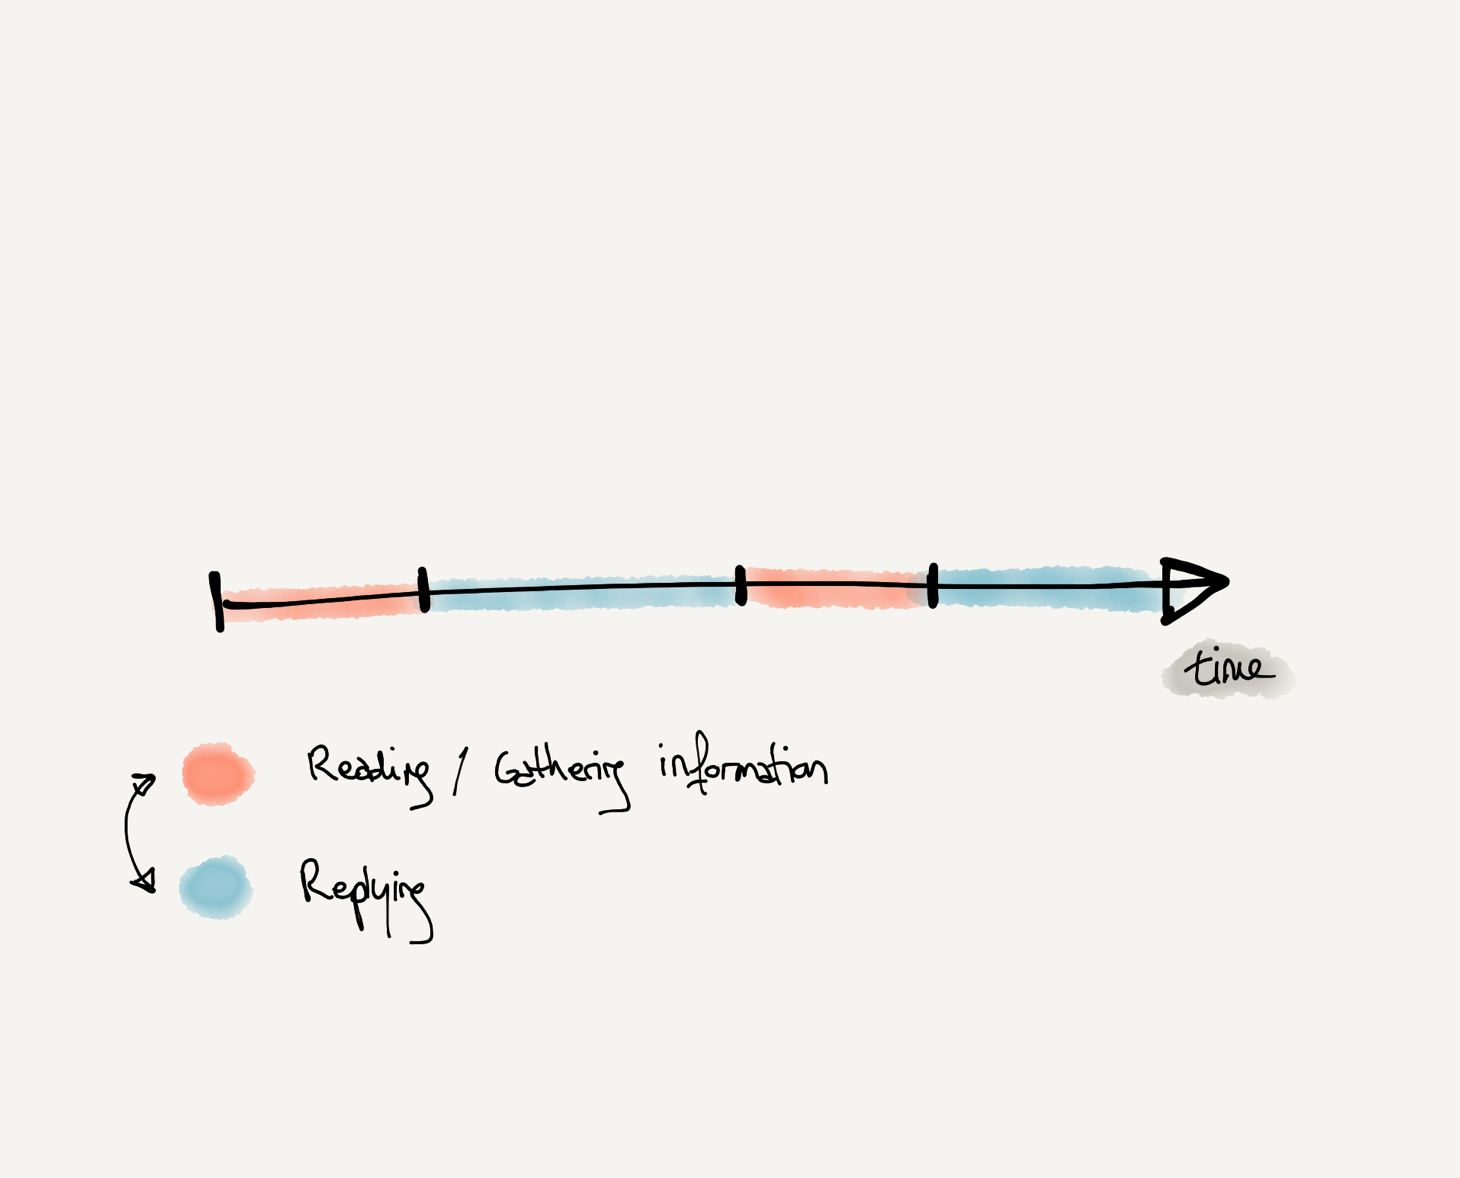 time
Reading / Gathering information
Replying